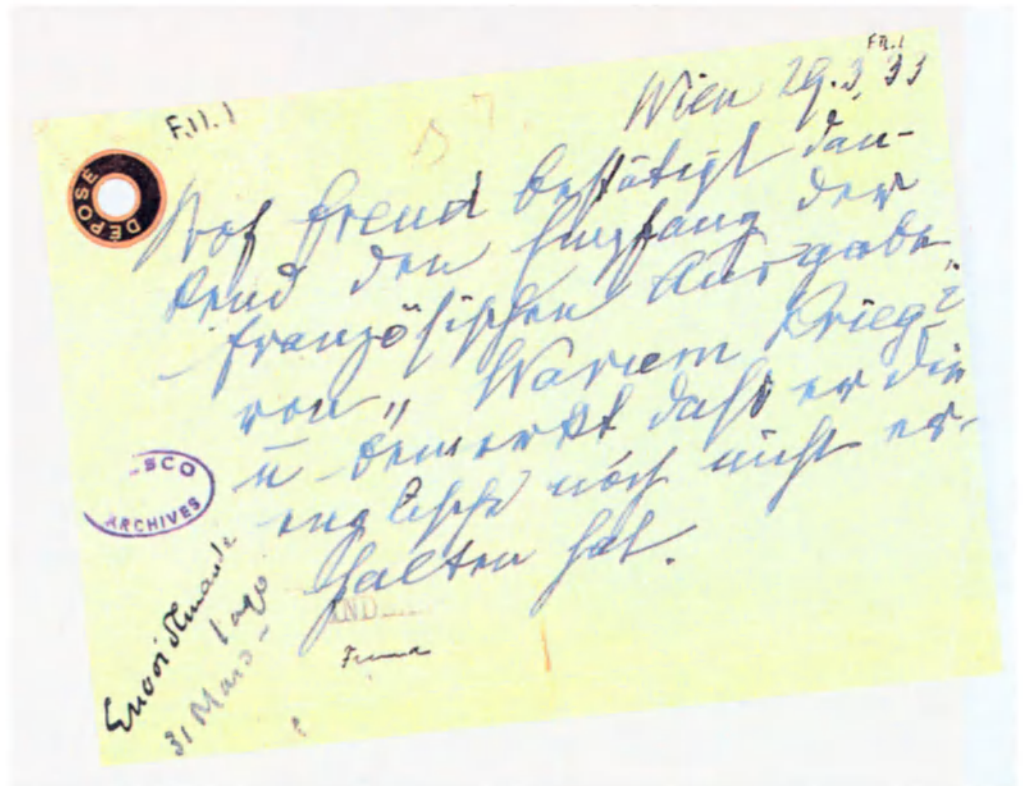 F.11.1
Wien 29.3.33
Prof Freud bestätigt dan-
kend den Empfang der
französischen Ausgabe
von „Warum Krieg?
u bemerkt daß er die
englische noch nicht er-
halten hat.
DEPOSE
SCO
ARCHIVES
31 Mars